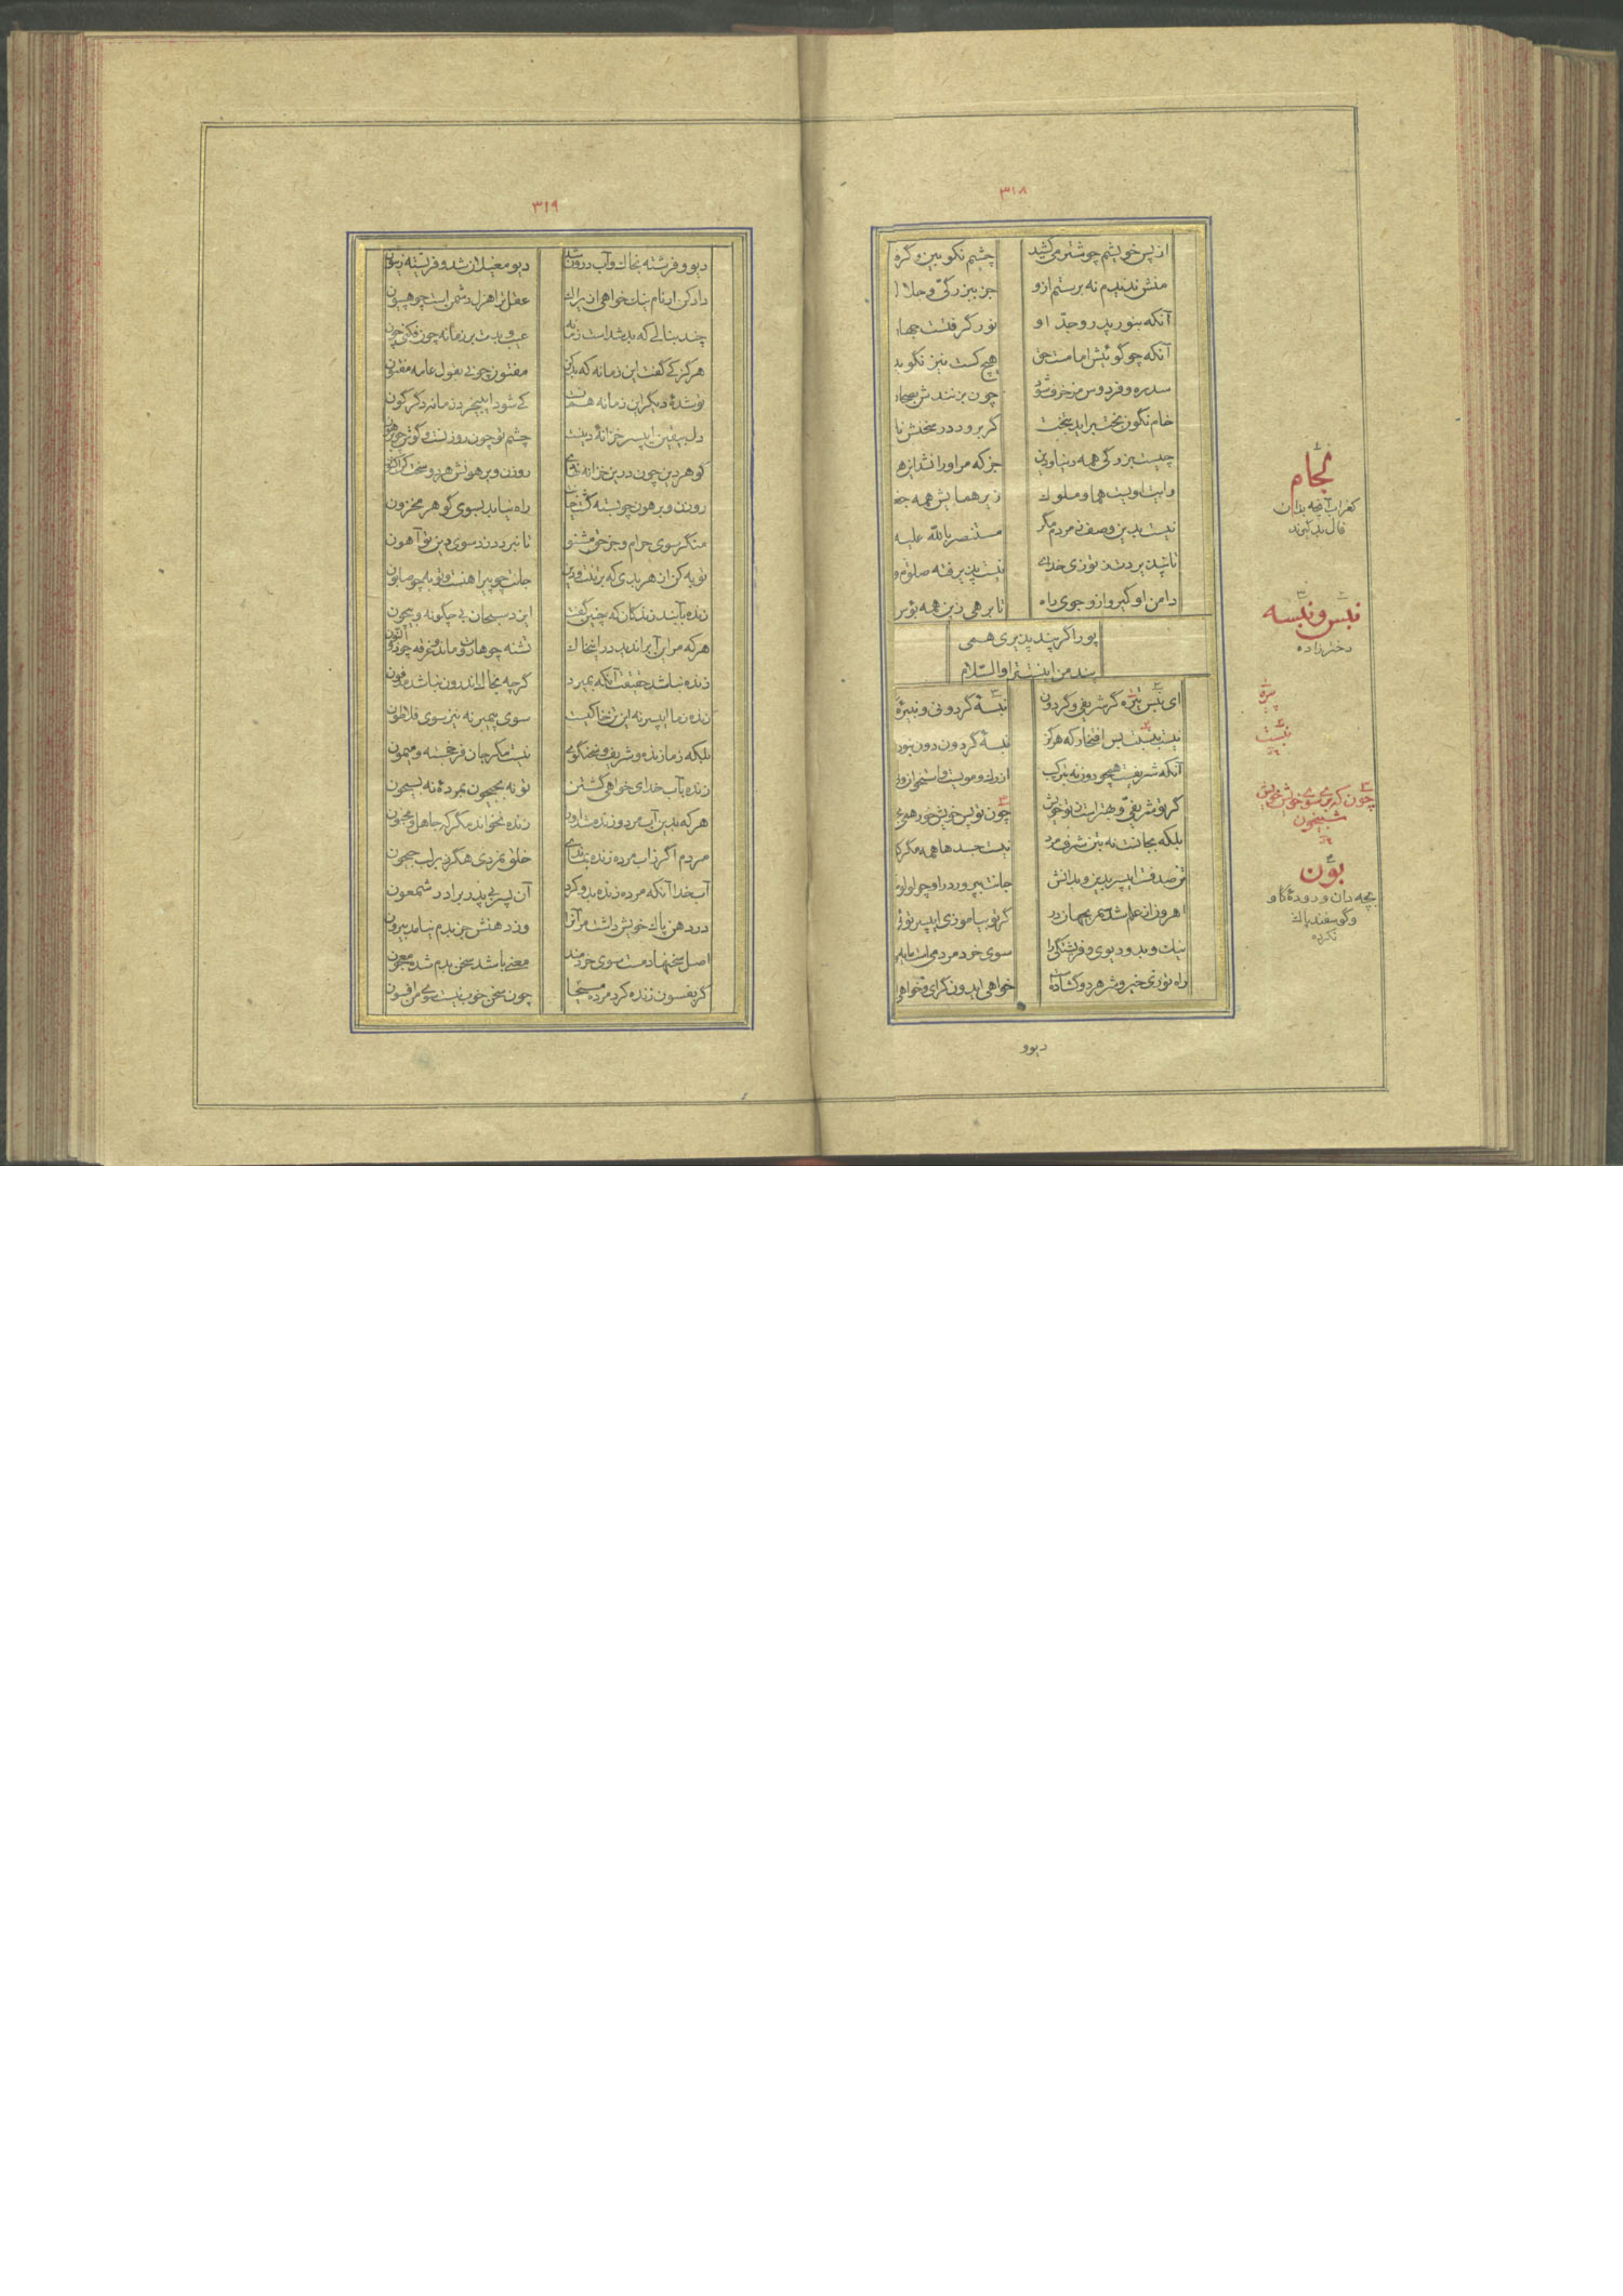 ۳۱۸
از پس خویشم چو شتر می‌کشید
چشم نکو بین و گره
منش ندیدم نه برستم ازو
جز ببزرگی و جلا
آنکه بنور پدر و جد او
نور گرفتست جها
آنکه چو گوئیش امامست حق
هیچ کست نیز نگوید
سدره و فردوس مزخرف شود
چون بزنندش بصحا
خام نگون بخت برآید ز تخت
گر برود در سخنش نا
چیست بزرگی همه دنیا و دین
جز که مر او را نشد این ه
رایت اویست هما و ملوک
زیر همایش همه جغ
نیست بدین وصف ز مردم مگر
مستنصر بالله علیه
تا نپذیردت ز تو زی خدای
نیست پذیرفته صلوة و
دامن او گیر و ازو جوی راه
تا برهی زین همه بؤس
پورا گر پند پذیری همی
پند من اینست ترا والسلام
ای نبس تیره گر شریفی و گر دون
نبسهٔ گردونی و نبیرهٔ
نیست بنسبت بس افتخار که هرگز
نبسهٔ گردون دون نبود
آنکه شریفست همچو دون نه بترکیب
از رگ و مویست و استخوان و
گر تو شریفی و بهتر است تو خویش
چون تو پس خویش خور همی
بلکه بجانست نه بتن شرف مرد
نیست جسدها همه مگر که
تن صدفست ای پسر بدین و بدانش
جانت بپرورد در او چو لولو
اهرون از علم شد سمر بجهان در
گر تو بیاموزی ای پسر توئی
نیک و بد و دیوی و فرشتگی را
سوی خرد مردمی است مایه
راه تو زی خیر و شر هر دو گشادست
خواهی ایدون گرای و خواهی
دیو و
نجام
بدان
فال بد گیرند
نبس و نبسه
دخترزاده
تیره
نبست
شبیخون
بون
بچه دان و رودهٔ گاو
و گوسفند پاک
نکرده
۳۱۹
دیو و فرشته بخاک و آب درون شد
دیو مغیلان شد و فرشته زیتون
داد کن ار نام نیک خواهی ازیراک
عقل ترا هزل دشمن است چو هپیون
چند بنالی که بد شدست زمانه
عیب و بدت بر زمانه چون فکنی چون
هرگز کی گفت این زمانه که بد کن
مفتون چونی بقول عامهٔ مفتون
تو شدهٔ دیگر این زمانه همانست
کی شود ای بیخرد زمانه دگرگون
دل بیقین ای پسر خزانهٔ دینست
چشم تو چون روزنست و گوش چو پرهون
گوهر دین چون درین خزانه نهادی
روزن و پرهونش هر دو سخت کن اکنون
روزن و پرهون چو بسته گشت خزانت
راه نیابد بسوی گوهر مخزون
منگر سوی حرام و جز حق مشنو
تا نبرد دزد سوی دین تو آهون
توبه کن از هر بدی که بر تنت و دین
جانت چو پیراهنست و توبه چو صابون
زنده بآبند زندگان که چنین گفت
ایزد سبحان بی چگونه و بیچون
هر که مر این آب را ندید در این خاک
تشنه چو هاروت ماند و غرقه چو ذوالنون
زنده نباشد حقیقت آنکه بمیرد
گرچه بخاک اندرون نباشد مدفون
زنده ز ما ای پسر نه این تن خاکیست
سوی پیمبر نه نیز سوی فلاطون
بلکه ز ما زنده و شریف و سخنگوی
نیست مگر جان فرخجسته و میمون
زنده بآب خدای خواهی گشتن
نه تو بجیحون بمردهٔ نه بسیحون
هر که بدین آب مرد و زنده شد او
زنده نخواند مگر که جاهل و مجنون
مردم اگر ز آب مرده زنده بماندی
خلق نمردی هگرز بر لب جیحون
آب خدا آنکه مرده زنده بدو کرد
آن پسر بی پدر برادر شمعون
در دهن پاک خویش داشت مر آنرا
وز دهنش جز بدم نیامد بیرون
اصل سخنها دم است سوی خردمند
معنی باشد سخن بدم شده معجون
گر بفسون زنده کرد مرده مسیحا
چون سخن خوب نیست سوی من افسون